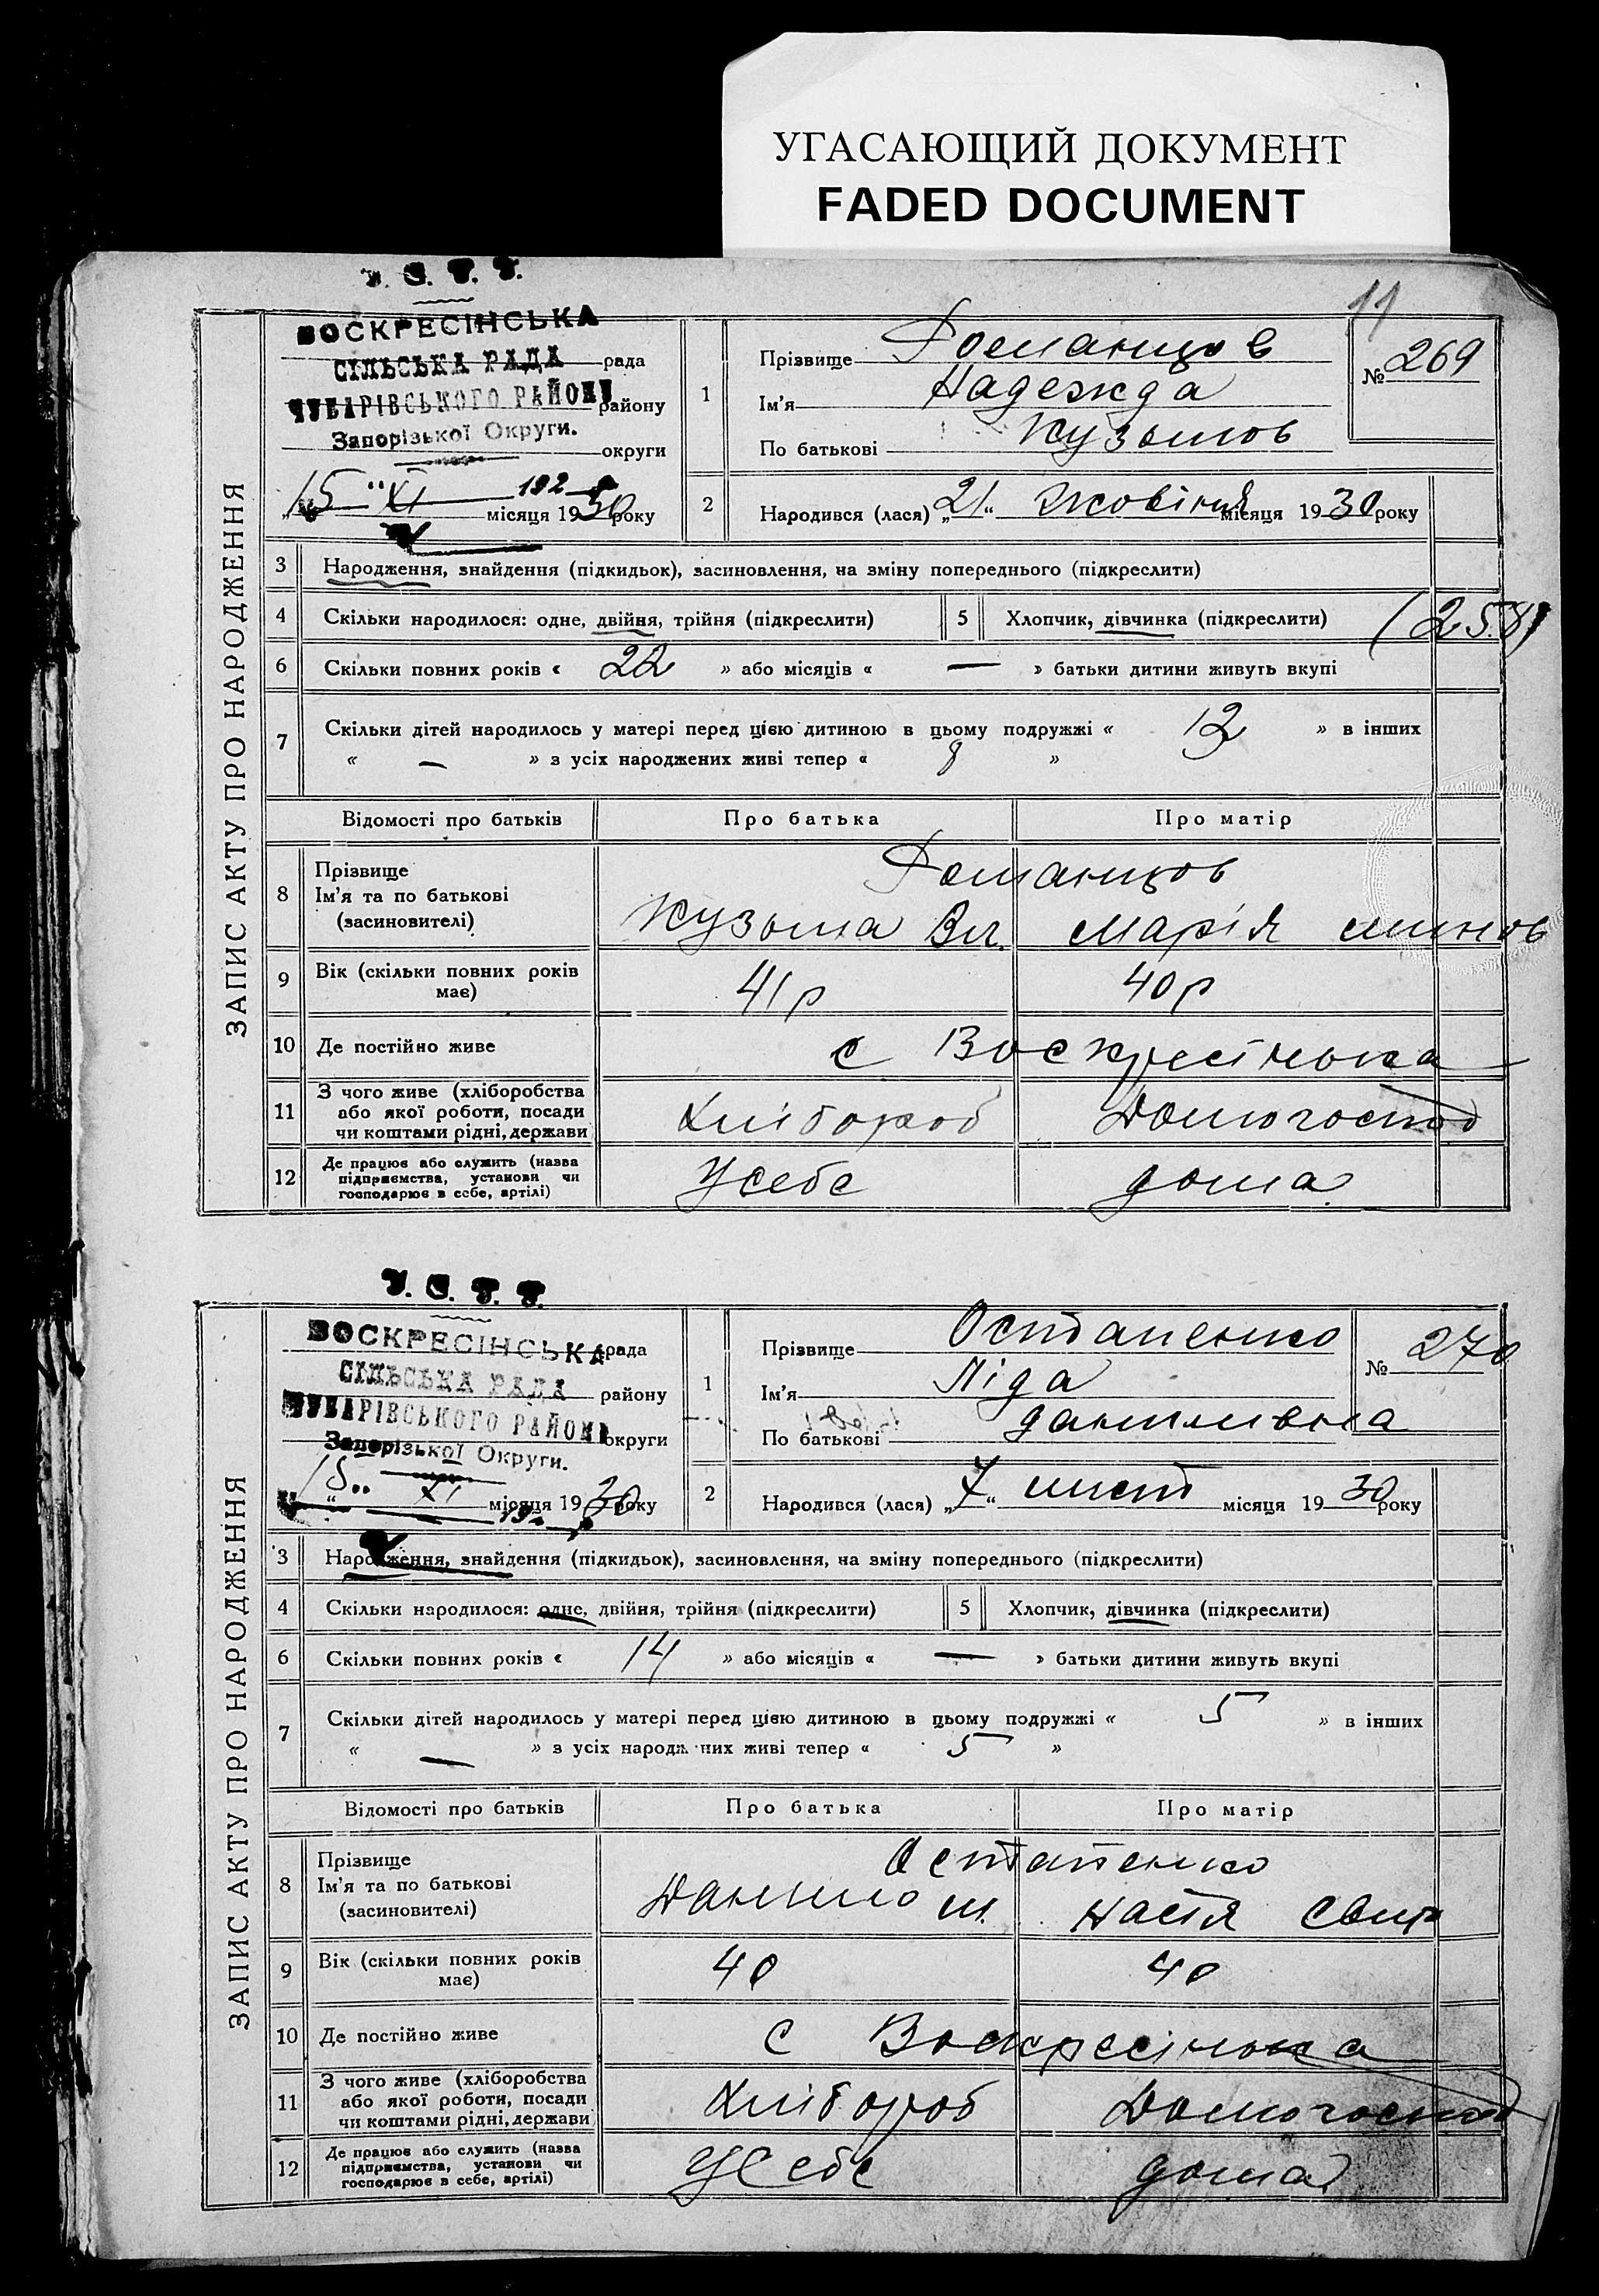 УГАСАЮЩИЙ ДОКУМЕНТ
FADED DOCUMENT
У. С. Р. Р.
11
ЗАПИС АКТУ ПРО НАРОДЖЕННЯ
ВОСКРЕСІНСЬКА
СІЛЬСЬКА РАДА рада
ЧУБАРІВСЬКОГО РАЙОНУ району
Запорізької Округи.
округи
„15“ XI 192
місяця 1930 року
1 Прізвище Романцов
Ім'я Надежда
По батькові Кузьмов
№ 269
2 Народився (лася) „21“ Жовтня місяця 1930 року
3 Народження, знайдення (підкидьок), засиновлення, на зміну попереднього (підкреслити)
4 Скільки народилося: одне, двійня, трійня (підкреслити) 5 Хлопчик, дівчинка (підкреслити) (258)
6 Скільки повних років « 22 » або місяців « — » батьки дитини живуть вкупі
7 Скільки дітей народилось у матері перед цією дитиною в цьому подружжі « 12 » в інших
« — » з усіх народжених живі тепер « 8 »
Відомості про батьків Про батька Про матір
8 Прізвище Романцов
Ім'я та по батькові
(засиновителі) Кузьма Вл. Марія
9 Вік (скільки повних років
має) 41 р 40 р
10 Де постійно живе с Воскресінська
11 З чого живе (хліборобства
або якої роботи, посади
чи коштами рідні, держави Хлібороб Домогоспод
12 Де працює або служить (назва
підприємства, установи чи
господарює в себе, артілі) У себе дома
У. С. Р. Р.
ЗАПИС АКТУ ПРО НАРОДЖЕННЯ
ВОСКРЕСІНСЬКА рада
СІЛЬСЬКА РАДА району
ЧУБАРІВСЬКОГО РАЙОНУ
Запорізької Округи. округи
„15“ XI місяця 1930 року
1 Прізвище Остапенко
Ім'я Ліда
По батькові Данилівна
№ 270
2 Народився (лася) „7“ лист місяця 1930 року
3 Народження, знайдення (підкидьок), засиновлення, на зміну попереднього (підкреслити)
4 Скільки народилося: одне, двійня, трійня (підкреслити) 5 Хлопчик, дівчинка (підкреслити)
6 Скільки повних років « 14 » або місяців « — » батьки дитини живуть вкупі
7 Скільки дітей народилось у матері перед цією дитиною в цьому подружжі « 5 » в інших
« — » з усіх народжених живі тепер « 5 »
Відомості про батьків Про батька Про матір
8 Прізвище Остапенко
Ім'я та по батькові
(засиновителі) Данило Настя
9 Вік (скільки повних років
має) 40 40
10 Де постійно живе с Воскресінська
11 З чого живе (хліборобства
або якої роботи, посади
чи коштами рідні, держави Хлібороб Домогоспод
12 Де працює або служить (назва
підприємства, установи чи
господарює в себе, артілі) У себе дома